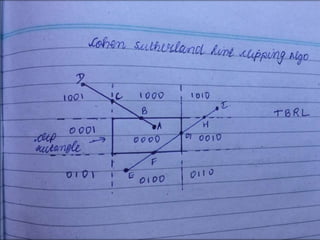 Cohen Sutherland line clipping Algo
D
I
1001 C 1000 1010
B H TBRL
A
0001 0000 G 0010
clip
rectangle
F
E
0101 0100 0110